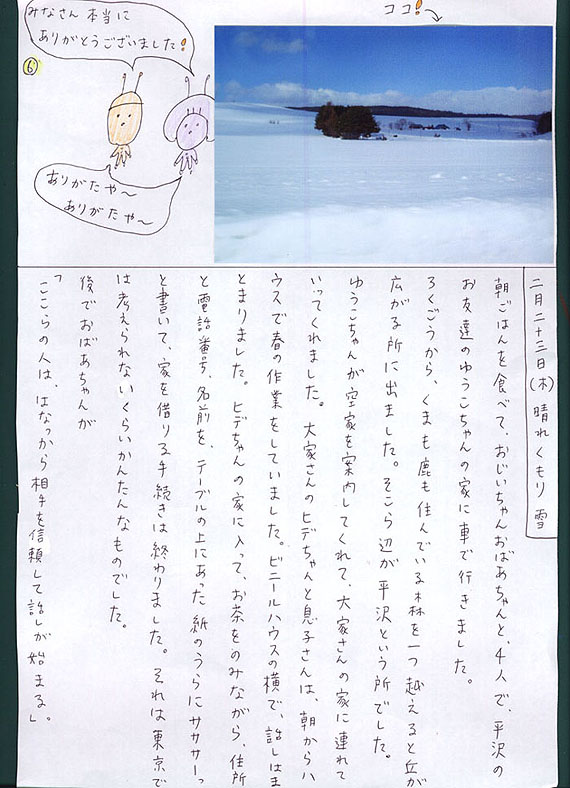 みなさん本当に
ありがとうございました!
ココ!
6
ありがたや〜
ありがたや〜
二月二十三日(木) 晴れくもり 雪
朝ごはんを食べて、おじいちゃんおばあちゃんと、4人で、平沢の
お友達のゆうこちゃんの家に車で行きました。
ろくごうから、くまも鹿も住んでいる森を一つ越えると丘が
広がる所に出ました。そこら辺が平沢という所でした。
ゆうこちゃんが空家を案内してくれて、大家さんの家に連れて
いってくれました。大家さんのヒデちゃんと息子さんは、朝からハ
ウスで春の作業をしていました。ビニールハウスの横で、話しはま
とまりました。ヒデちゃんの家に入って、お茶をのみながら、住所
と電話番号、名前を、テーブルの上にあった紙のうらにササササーっ
と書いて、家を借りる手続きは終わりました。それは東京で
は考えられないくらいかんたんなものでした。
後でおばあちゃんが
「ここらの人は、はなっから相手を信頼して話しが始まる」。